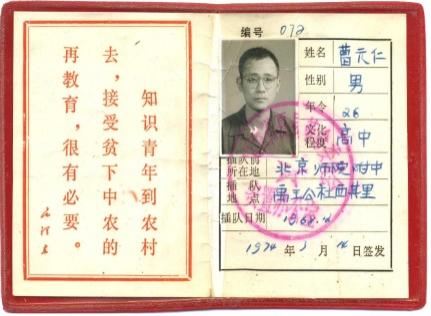 知识青年到农村
去，接受贫下中农的
再教育，很有必要。
毛泽东
编号 072
姓名 曹元仁
性别 男
年令 26
文化程度 高中
插队前所在地 北京师院附中
插队地点 禹王公社西其里
插队日期 1968.
1974 年 3 月 日签发